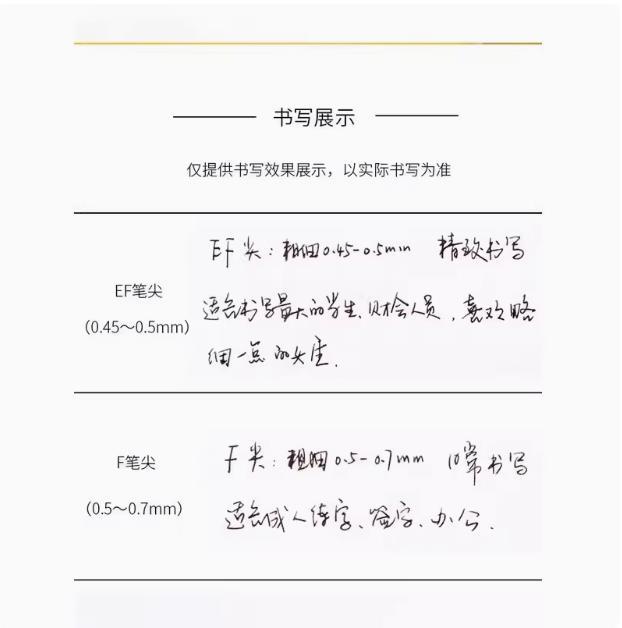 书写展示
仅提供书写效果展示，以实际书写为准
EF笔尖
(0.45～0.5mm)
EF尖：粗细0.45-0.5mm 精致书写
适合书写量大的学生、财会人员，喜欢略
细一点的女生.
F笔尖
(0.5～0.7mm)
F尖：粗细0.5-0.7mm 日常书写
适合成人练字、签字、办公.